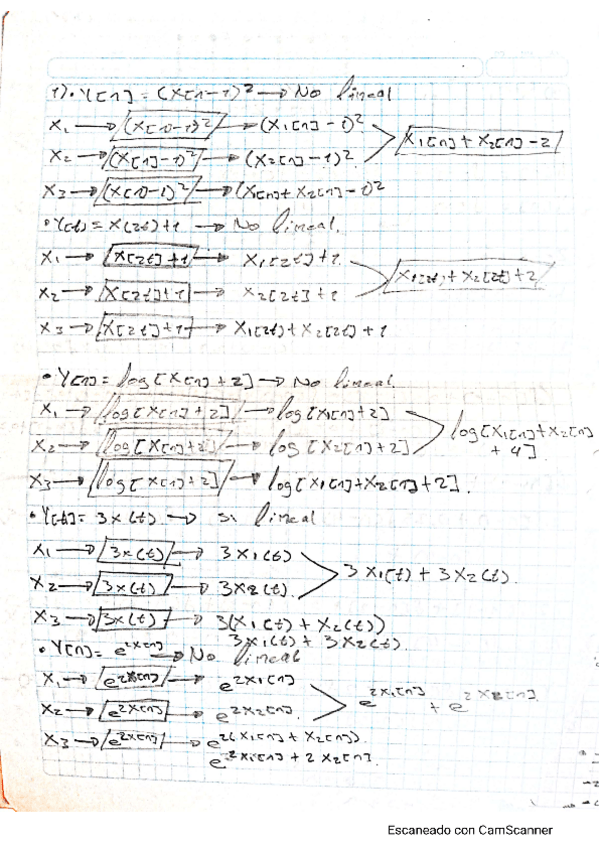 1). Y[n] = (X[n-1)² → No lineal
X₁ → (X[n-1)² → (X₁[n]-1)²
X₂ → (X[n]-1)² → (X₂[n]-1)²
X₁[n] + X₂[n] - 2
X₃ → (X[n]-1)² → (X₁[n] + X₂[n]-1)²
• Y(t) = X(2t)+1 → No lineal.
X₁ → X[2t]+1 → X₁[2t]+1
X₂ → X[2t]+1 → X₂[2t]+1
X₁[2t] + X₂[2t]+2
X₃ → X[2t]+1 → X₁[2t] + X₂[2t] + 1
• Y[n] = log[X[n]+2] → No lineal.
X₁ → log[X[n]+2] → log[X₁[n]+2]
X₂ → log[X[n]+2] → log[X₂[n]+2]
log[X₁[n]+X₂[n]
+ 4]
X₃ → log[X[n]+2] → log[X₁[n]+X₂[n]+2].
• Y[t] = 3x(t) → si lineal
X₁ → 3x(t) → 3X₁(t)
X₂ → 3x(t) → 3X₂(t).
3X₁(t) + 3X₂(t).
X₃ → 3x(t) → 3(X₁(t) + X₂(t))
3X₁(t) + 3X₂(t).
• Y[n] = e^2X[n] → No lineal
X₁ → e^2X[n] → e^2X₁[n]
X₂ → e^2X[n] → e^2X₂[n]
e^2X₁[n] + e^2X₂[n]
X₃ → e^2X[n] → e^2(X₁[n] + X₂[n])
e^2X₁[n] + 2X₂[n]
Escaneado con CamScanner